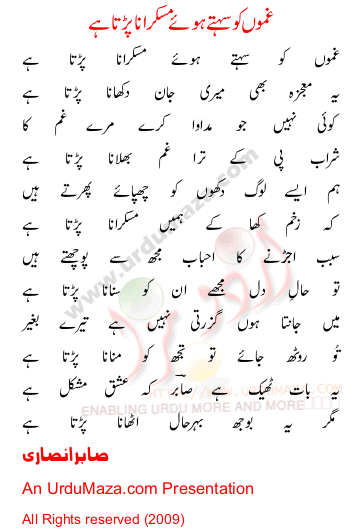 غموں کو سہتے ہوئے مسکرانا پڑتا ہے
غموں کو سہتے ہوئے مسکرانا پڑتا ہے
یہ معجزہ بھی میری جان دکھانا پڑتا ہے
کوئی نہیں جو مداوا کرے مرے غم کا
شراب پی کے ترا غم بھلانا پڑتا ہے
ہم ایسے لوگ دکھوں کو چھپائے پھرتے ہیں
کہ زخم کھا کے ہمیں مسکرانا پڑتا ہے
سبب اجڑنے کا احباب مجھ سے پوچھتے ہیں
تو حالِ دل مجھے ان کو سنانا پڑتا ہے
میں جانتا ہوں گزرتی نہیں ہے تیرے بغیر
تُو روٹھ جائے تو تجھ کو منانا پڑتا ہے
یہ بات ٹھیک ہے صابر کہ عشق مشکل ہے
مگر یہ بوجھ بہرحال اٹھانا پڑتا ہے
صابر انصاری
An UrduMaza.com Presentation
All Rights reserved (2009)
www.urdumaza.com
اردو مزا
ENABLING URDU MORE AND MORE